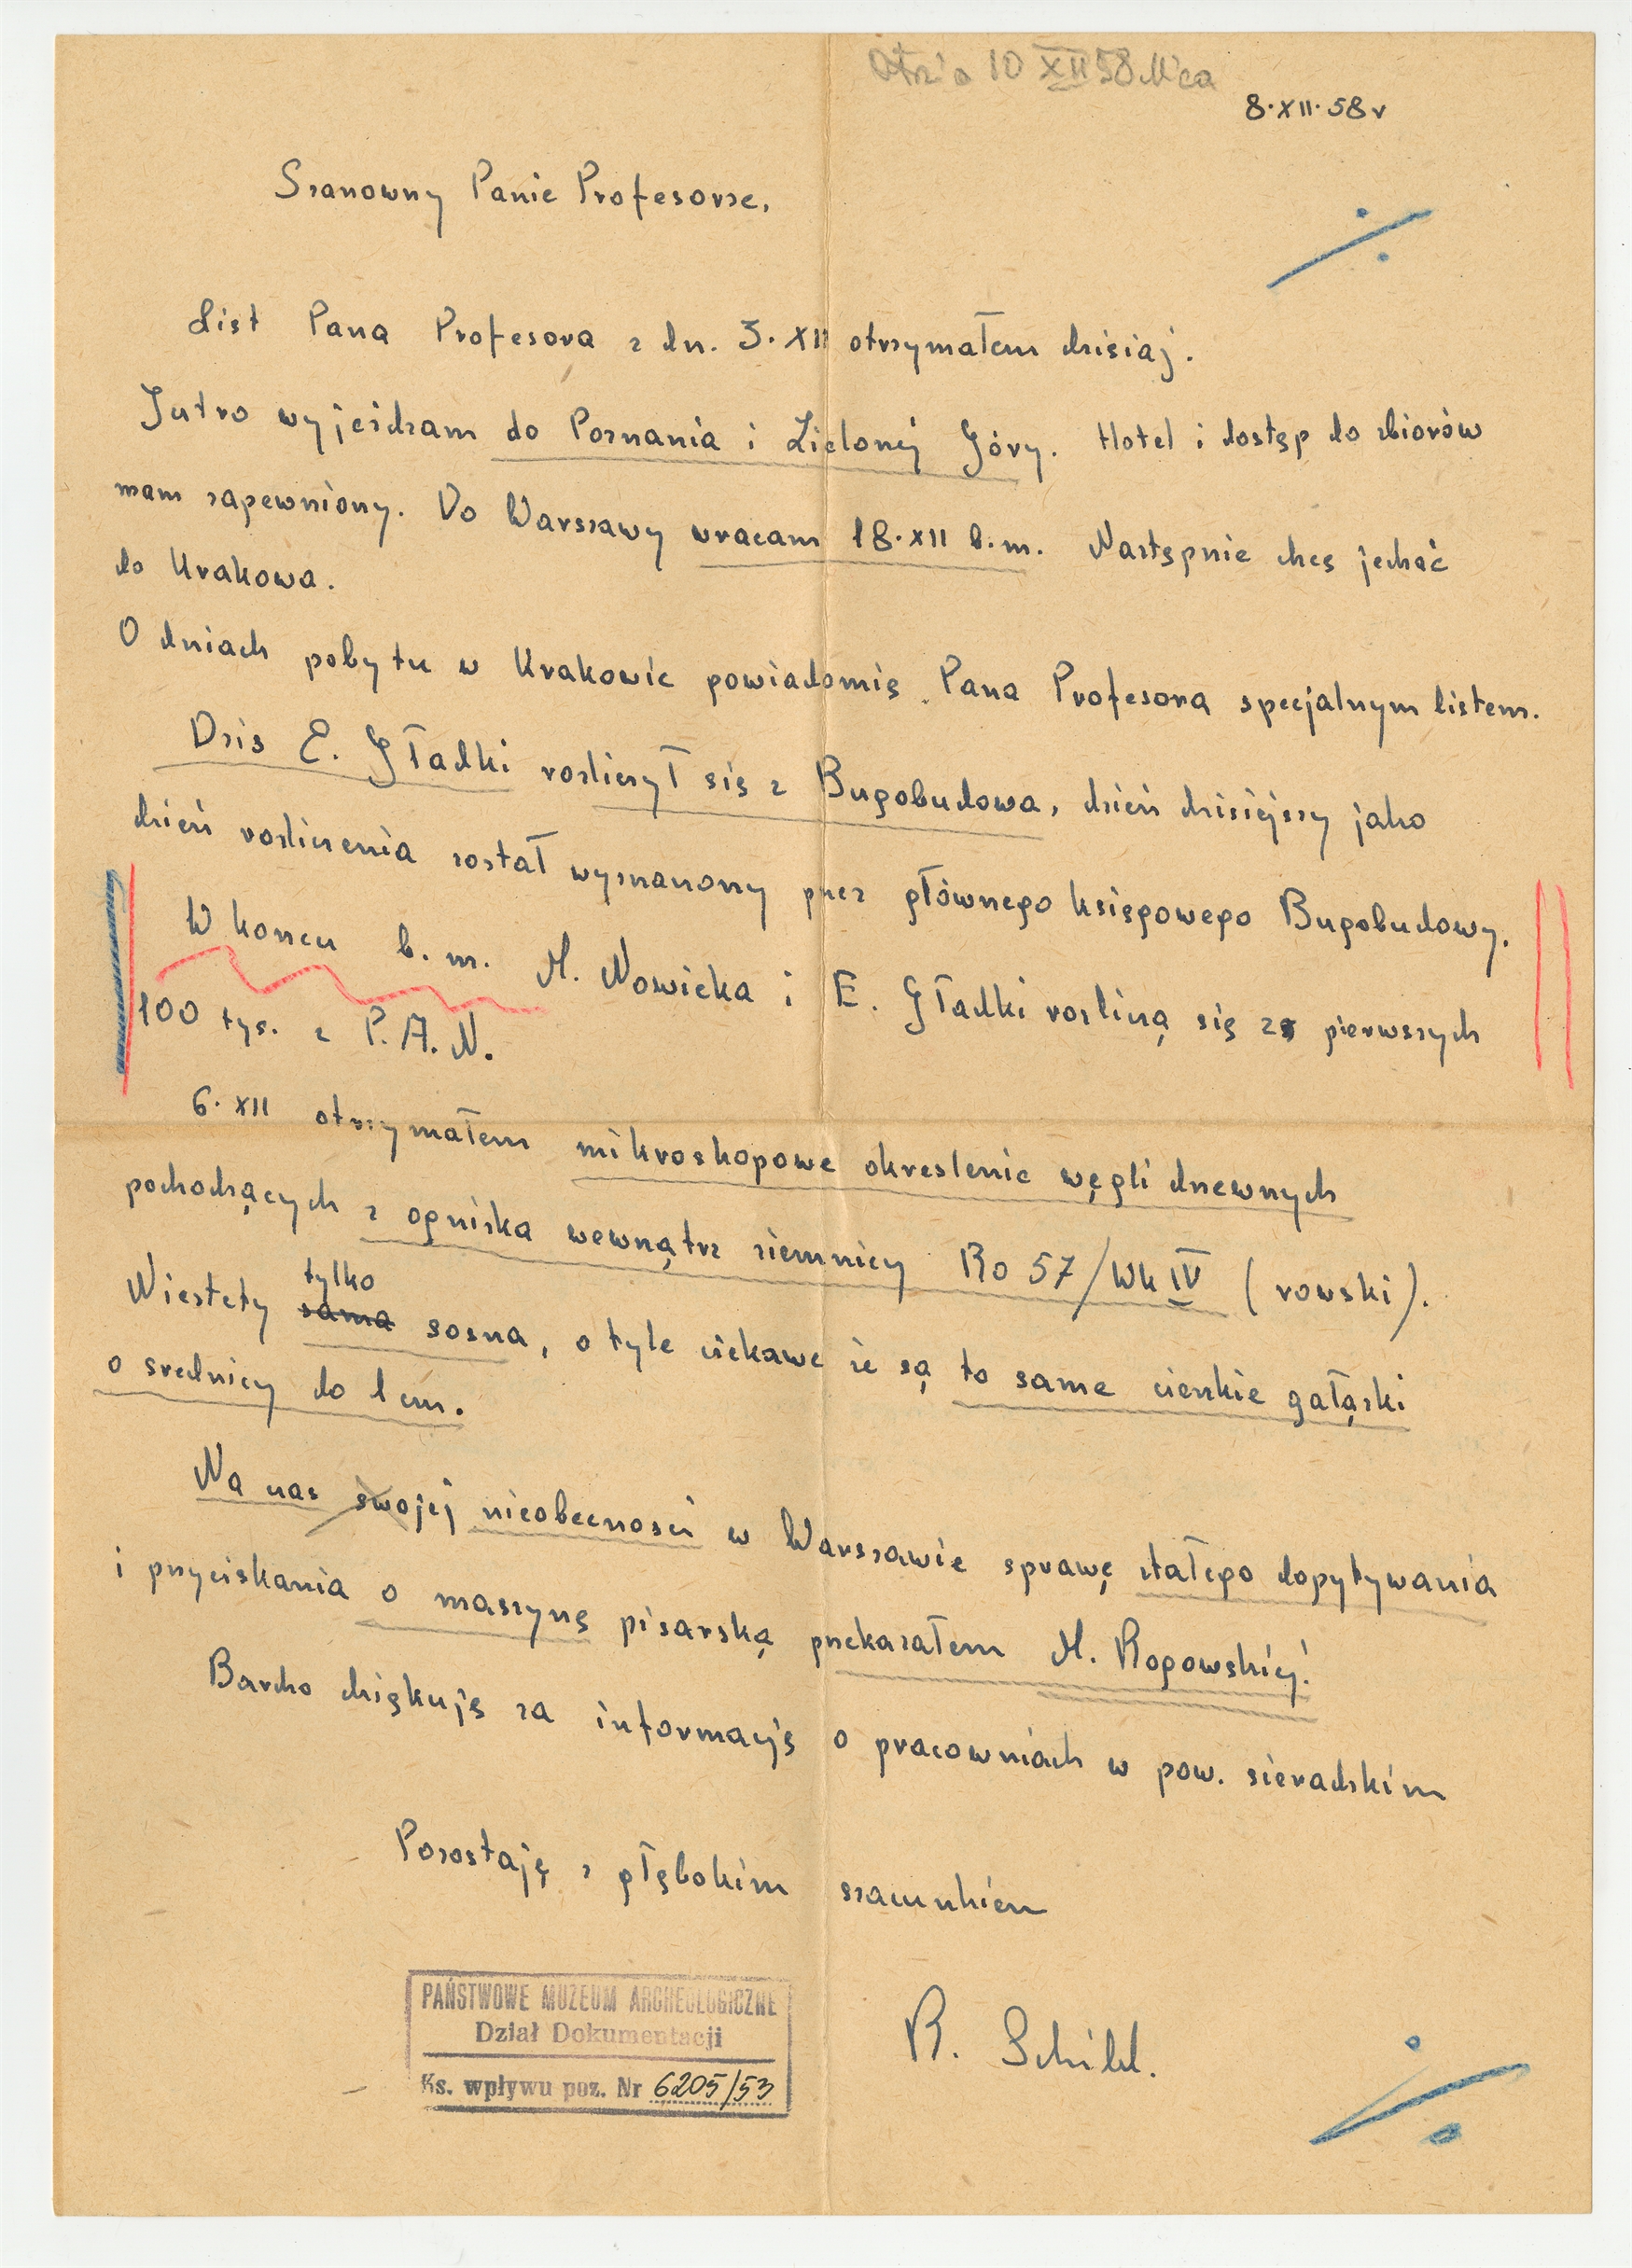 10 XII 58
8.XII.58 r
Szanowny Panie Profesorze,
List Pana Profesora z dn. 5.XII otrzymałem dzisiaj.
Jutro wyjeżdzam do Poznania i Zielonej Góry. Hotel i dostęp do zbiorów
mam zapewniony. Do Warszawy wracam 18.XII b.m. Następnie chcę jechać
do Krakowa.
O dniach pobytu w Krakowie powiadomię Pana Profesora specjalnym listem.
Dziś E. Gładki rozliczył się z Bugobudowa, dzień dzisiejszy jako
dzień rozliczenia został wyznaczony przez głównego księgowego Bugobudowy.
W koncu b.m. M. Nowicka i E. Gładki rozliczą się ze pierwszych
100 tys. z P.A.N.
6.XII otrzymałem mikroskopowe okreslenie węgli drzewnych
pochodzących z ogniska wewnątrz ziemnicy Ro 57/Wk IV (rowski).
Niestety sama tylko sosna, o tyle ciekawe że są to same cienkie gałązki
o srednicy do 1 cm.
Na czas swojej nieobecnosci w Warszawie sprawę stałego dopytywania
i przyciskania o maszynę pisarską przekazałem M. Rogowskiej!
Bardzo dziękuję za informację o pracowniach w pow. sieradzkim
Pozostaję z głębokim szacunkiem
R. Schild.
PAŃSTWOWE MUZEUM ARCHEOLOGICZNE
Dział Dokumentacji
Ks. wpływu poz. Nr 6205/53